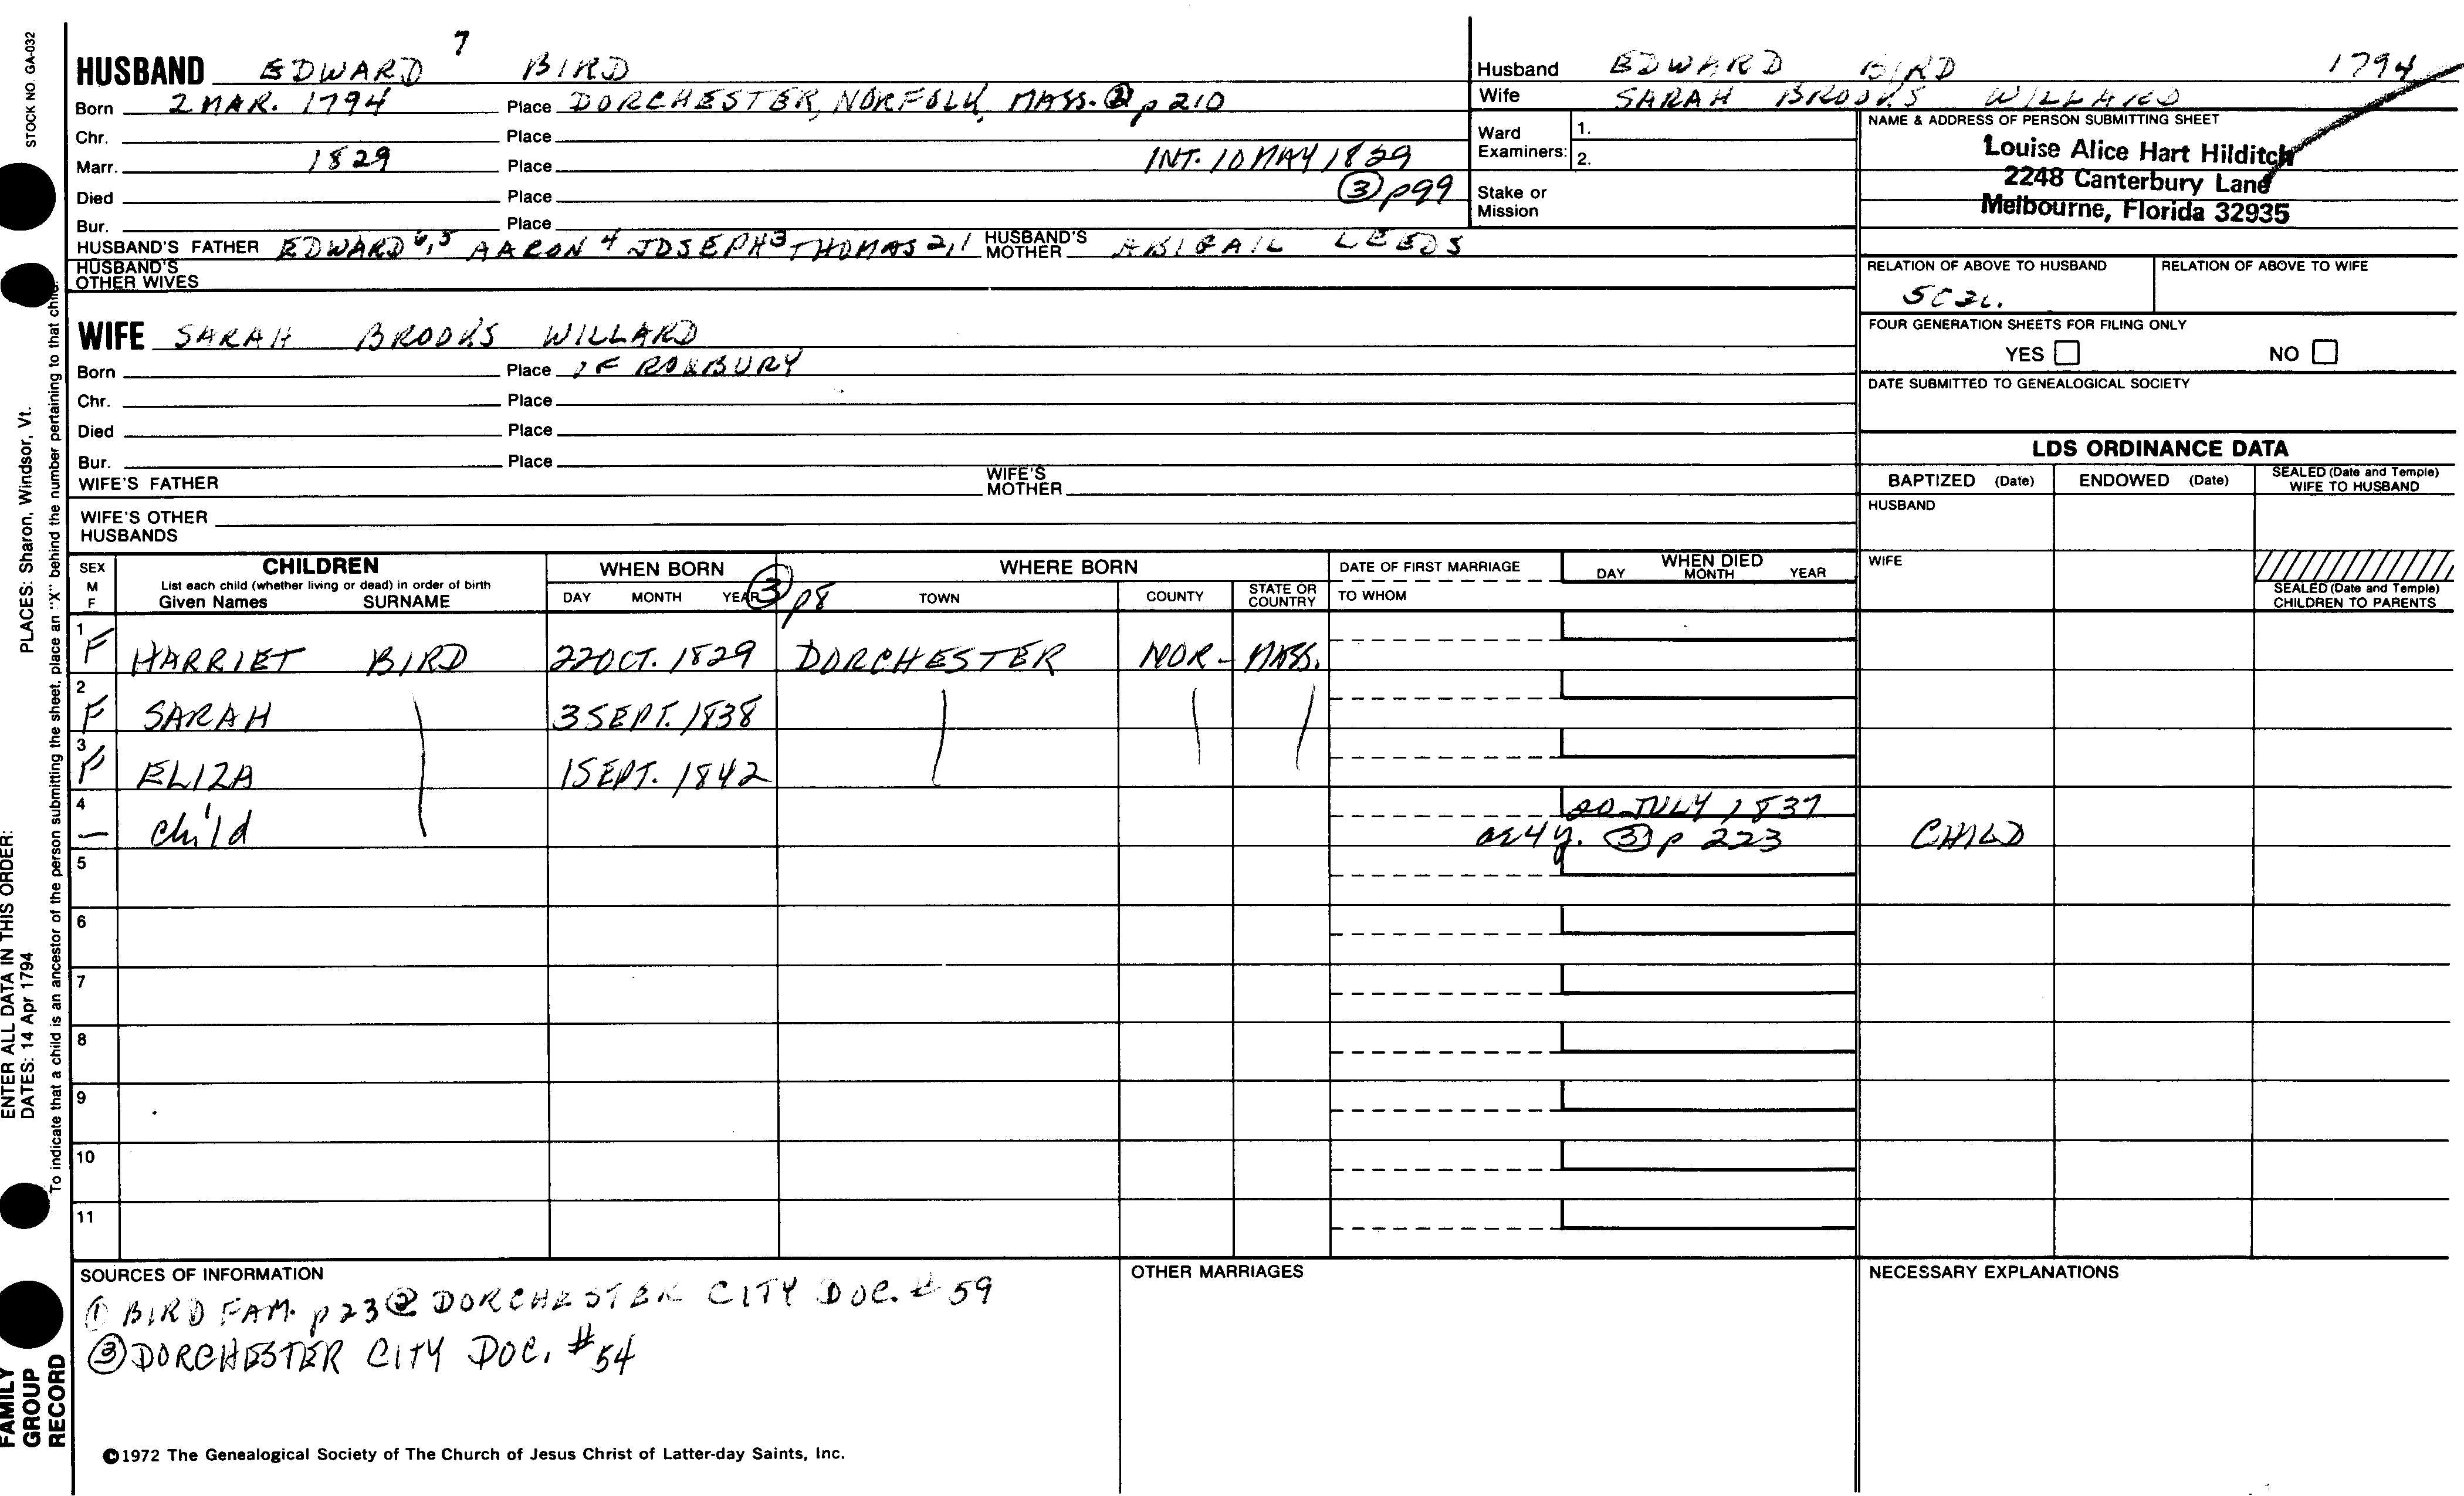 STOCK NO. GA-032
7
HUSBAND EDWARD BIRD
Born 2 MAR. 1794 Place DORCHESTER, NORFOLK, MASS. ② p 210
Chr. Place
Marr. 1829 Place INT. 10 MAY 1829
Died Place ③ p99
Bur. Place
HUSBAND'S FATHER EDWARD 6,5 AARON 4 JOSEPH 3 THOMAS 2,1 HUSBAND'S MOTHER ABIGAIL LEEDS
HUSBAND'S OTHER WIVES
WIFE SARAH BROOKS WILLARD
Born Place OF ROXBURY
Chr. Place
Died Place
Bur. Place
WIFE'S FATHER WIFE'S MOTHER
WIFE'S OTHER HUSBANDS
Husband EDWARD BIRD 1794
Wife SARAH BROOKS WILLARD
Ward Examiners: 1.
2.
Stake or Mission
NAME & ADDRESS OF PERSON SUBMITTING SHEET
Louise Alice Hart Hilditch
2248 Canterbury Lane
Melbourne, Florida 32935
RELATION OF ABOVE TO HUSBAND RELATION OF ABOVE TO WIFE
5C2C.
FOUR GENERATION SHEETS FOR FILING ONLY
YES NO
DATE SUBMITTED TO GENEALOGICAL SOCIETY
LDS ORDINANCE DATA
BAPTIZED (Date) ENDOWED (Date) SEALED (Date and Temple) WIFE TO HUSBAND
HUSBAND
WIFE
SEALED (Date and Temple) CHILDREN TO PARENTS
SEX M F CHILDREN WHEN BORN WHERE BORN DATE OF FIRST MARRIAGE WHEN DIED
List each child (whether living or dead) in order of birth
Given Names SURNAME DAY MONTH YEAR ③ p8 TOWN COUNTY STATE OR COUNTRY TO WHOM DAY MONTH YEAR
1 F HARRIET BIRD 22 OCT. 1829 DORCHESTER NOR- MASS.
2 F SARAH 3 SEPT. 1838
3 F ELIZA 1 SEPT. 1842
4 — child 20 JULY 1837
ae 4 y. ③ p 223 CHILD
5
6
7
8
9
10
11
SOURCES OF INFORMATION
① BIRD FAM. p 23 ② DORCHESTER CITY DOC. # 59
③ DORCHESTER CITY DOC. # 54
OTHER MARRIAGES
NECESSARY EXPLANATIONS
©1972 The Genealogical Society of The Church of Jesus Christ of Latter-day Saints, Inc.
FAMILY GROUP RECORD
ENTER ALL DATA IN THIS ORDER:
DATES: 14 Apr 1794 PLACES: Sharon, Windsor, Vt.
To indicate that a child is an ancestor of the person submitting the sheet, place an "X" behind the number pertaining to that child.